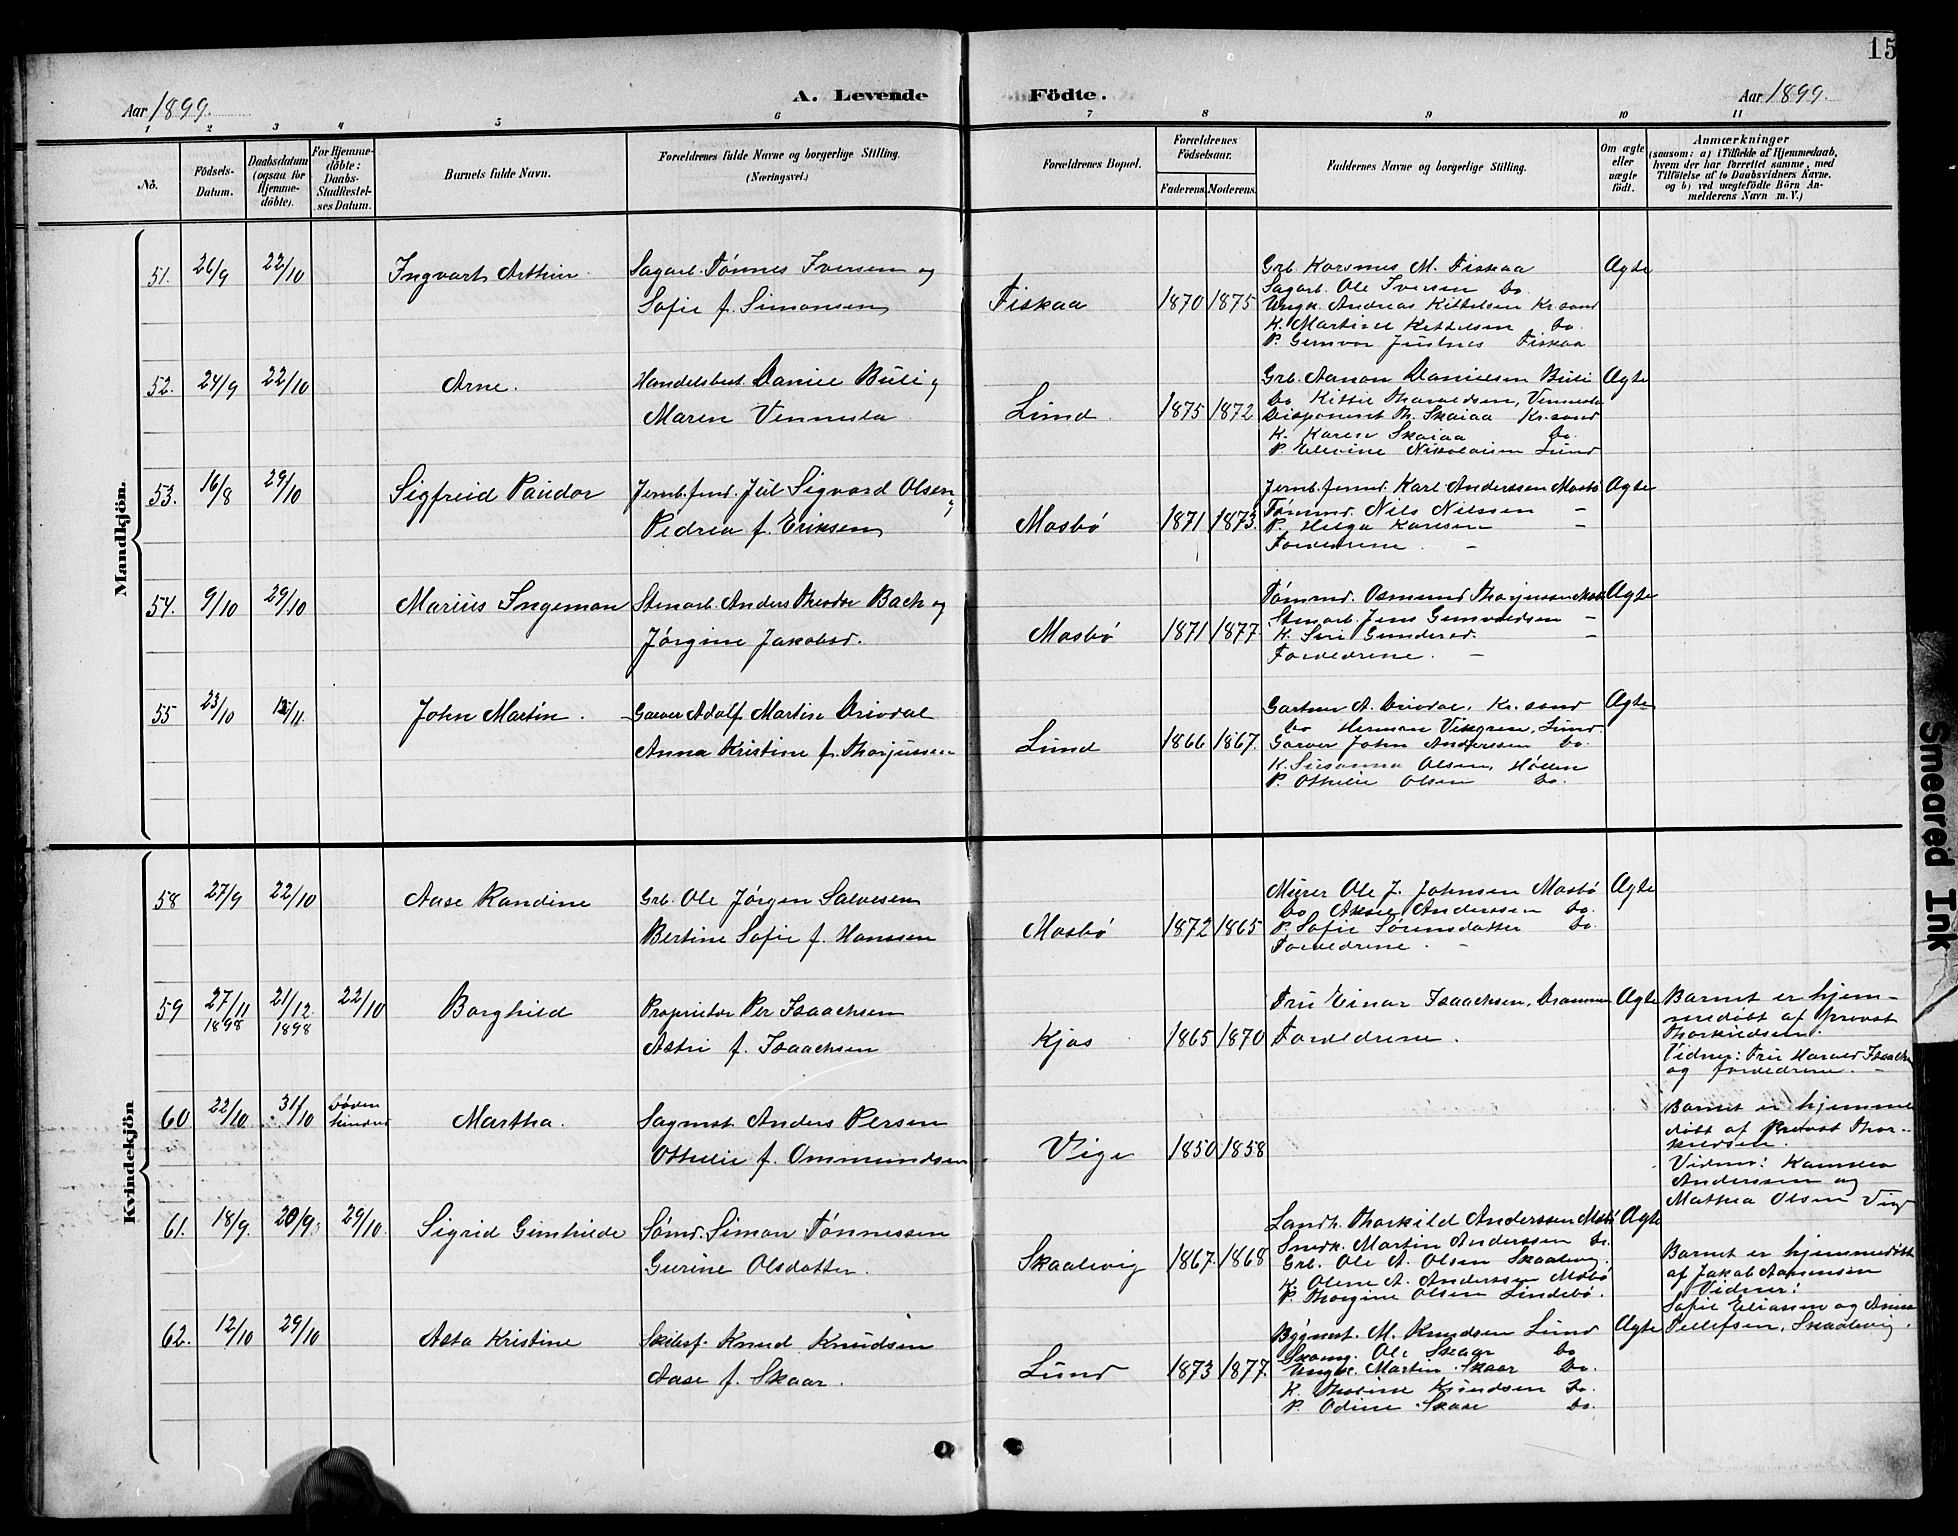 15
Aar 1899.
A. Levende
Födte.
Aar 1899.
1 2 3 4 5 6 7 8 9 10 11
No.
Födsels-
Datum.
Daabsdatum
(ogsaa for
Hjemme-
döbte).
For Hjemme-
döbte:
Daabs-
Stadfæstel-
ses Datum.
Barnets fulde Navn.
Forældrenes fulde Navne og borgerlige Stilling.
(Næringsvei.)
Forældrenes Bopæl.
Forældrenes
Födselsaar.
Faderens. Moderens.
Faddernes Navne og borgerlige Stilling.
Om ægte
eller
uægte
födt.
Anmærkninger
(saasom: a) i Tilfælde af Hjemmedaab,
hvem der har forrettet samme, med
Tilföielse af to Daabsvidners Navne.
og b) ved uægtefödte Börn An-
melderens Navn m. V.)
Mandkjön.
51. 26/9 22/10 Ingvart Arthur. Sagarb. Tønnes Iversen og
Sofie f. Simonsen
Fiskaa 1870 1875
Grb. Rasmus M. Fiskaa
Sagarb. Ole Iversen do.
Ungk. Andreas Kittelsen Kr.sand
K. Martine Kittelsen do.
P. Gunvor Justnes Fiskaa
Ægte
52. 24/9 22/10 Arne. Handelsbest. Daniel Buli og
Maren Vennesla
Lund. 1875 1872
Grb. Aanon Danielsen Buli
do Kittil Tharaldsen, Vennesla
Disponent Th. Skaiaa Kr.sand
K. Karen Skaiaa do.
P. Elevine Nikolaisen Lund
Ægte
53. 16/8 29/10 Sigfried Paudor Jernb.fmd. Jul Sigvard Olsen og
Pedrea f. Eriksen
Mosbø 1871 1873.
Jernb.formd. Karl Anderssen Mosbø
Tømmd. Nils Nilssen –
P. Helga Karlsen –
Forældrene. –
Ægte
54. 9/10 29/10 Marius Ingeman Stenarb. Anders Theodor Bach og
Jørgine Jakobsd.
Mosbø 1871 1877
Tømmd. Osmund Thorjussen Mosb
Stenarb. Jens Gunvaldsen –
K. Siri Gundersd. –
Forældrene. –
Ægte
55 23/10 12/11 John Martin. Garver Adolf Martin Drivdal
Anna Kristine f. Thorjussen
Lund 1866 1867.
Gartner A. Drivdal, Kr.sand
do Herman Vikgren, Lund.
Garver John Anderssen do.
K. Susanna Olsen, Høllen
P. Othilie Olsen do.
Ægte
Kvindekjön
58 27/9 22/10 Aase Randine Grb. Ole Jørgen Salvesen
Bertine Sofie f. Hanssen
Mosbø 1872 1865
Murer Ole J. Johnsen Mosbø
do Aksel Anderssen do.
P. Sofie Sørensdatter do.
Forældrene. –
Ægte
59 27/11 1898 21/12 1898 22/10 Borghild Proprietær Per Isaachsen
Astri f. Isaachsen
Kjos 1865 1870
Fru Einar Isaachsen, Drammen
Forældrene.
Ægte
Barnet er hjem-
medøbt af provst
Thorkildsen.
Vidner: Fru Harald Isaachs
og forældrene. –
60 22/10 31/10 døden hindret Martha. Sagmst. Anders Persen
Othilie f. Ommundsen
Vige 1850 1858
Barnet er hjemme
døbt af Provst Thor-
kildsen.
Vidner: Kamilla
Anderssen og
Mathea Olsen Vige
61. 18/9. 20/9. 29/10. Sigrid Gunhilde Sømd. Simon Tønnessen
Gurine Olsdatter.
Skaalevig 1867. 1868
Landh. Thorkild Anderssen Mosbø
Snedk. Martin Anderssen do.
Grb. Ole A. Olsen Skaalevig.
K. Olene A. Anderssen Mosbø
P. Thorgine Olsen Lindebø.
Ægte
Barnet er hjemmedøbt
af Jakob Aanensen
Vidner:
Sofie Eliassen og Anna
Tellefsen, Skaalevig.
62. 12/10 29/10 Asta Kristine Skibsf. Knud Knudsen
Aase f. Skaar.
Lund 1873 1877.
Bygmst. M. Knudsen Lund
Skomg. Ole Skaar do
Ungk. Martin Skaar do.
K. Thorine Knudsen do.
P. Odine Skaar do.
Ægte
Smeared Ink